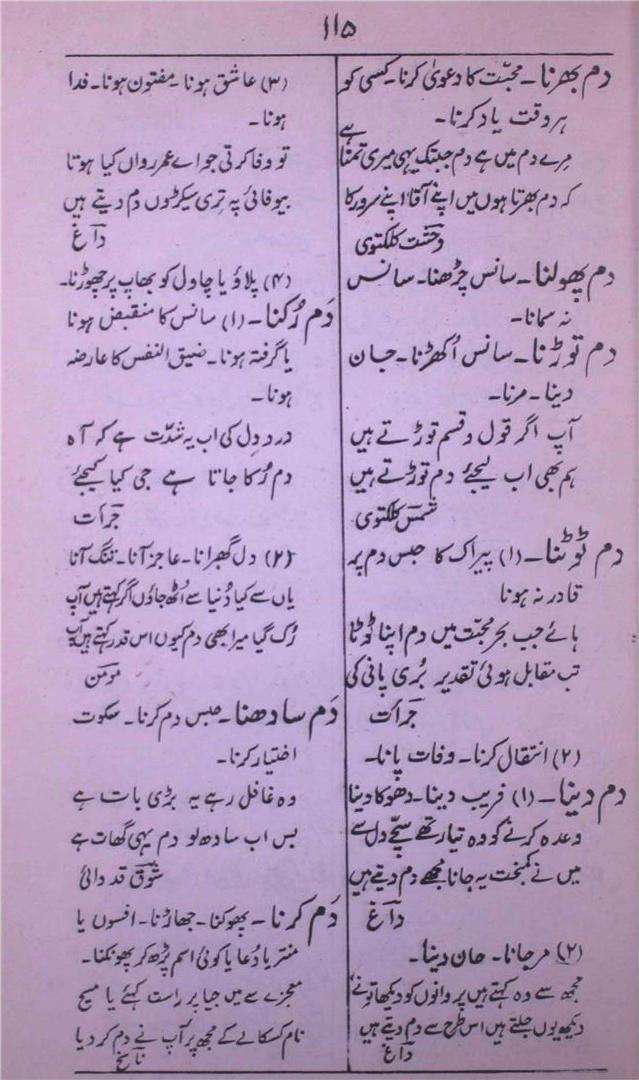 ۱۱۵
دم بھرنا۔ محبّت کا دعویٰ کرنا۔ کسی کو
ہر وقت یاد کرنا۔
مرے دم میں ہے دم جبتک یہی میری تمنا ہے
کہ دم بھرتا ہوں میں اپنے آقا اپنے سرور کا
وحشت کلکتوی
دم پھولنا۔ سانس چڑھنا۔ سانس
نہ سمانا۔
دم توڑنا۔ سانس اُکھڑنا۔ جان
دینا۔ مرنا۔
آپ اگر قول و قسم توڑتے ہیں
ہم بھی اب لیجئے دم توڑتے ہیں
شمس کلکتوی
دم ٹوٹنا۔ (۱) پیراک کا حبس دم پر
قادر نہ ہونا
ہائے جب بحر محبت میں دم اپنا ٹوٹا
تب مقابل ہوئی تقدیر بُری پانی کی
جرأت
(۲) انتقال کرنا۔ وفات پانا۔
دم دینا۔ (۱) فریب دینا۔ دھوکا دینا
وعدہ کرنے کو وہ تیار تھے سچّے دل سے
میں نے کمبخت یہ جانا مجھے دم دیتے ہیں
داغ
(۲) مرجانا۔ جان دینا۔
مجھ سے وہ کہتے ہیں پروانوں کو دیکھا تونے
دیکھ یوں جلتے ہیں اس طرح سے دم دیتے ہیں
داغ
(۳) عاشق ہونا۔ مفتون ہونا۔ فدا
ہونا۔
تو وفا کرتی جو اے عمر رواں کیا ہوتا
بیوفائی پہ تری سیکڑوں دم دیتے ہیں
داغ
(۴) پلاؤ یا چاول کو بھاپ پر چھوڑنا۔
دَم رُکنا۔ (۱) سانس کا منقبض ہونا
یا گرفتہ ہونا۔ ضیق النفس کا عارضہ
ہونا۔
درد دل کی اب یہ شدّت ہے کہ آہ
دم رُکا جاتا ہے جی کیا کیجئے
جرأت
(۲) دل گھبرانا۔ عاجز آنا۔ تنگ آنا
یاں سے کیا دُنیا سے اُٹھ جاؤں اگر کہتے ہیں آپ
رُک گیا میرا بھی دم کیوں اس قدر کہتے ہیں آپ
مومن
دَم سادھنا۔ حبس دم کرنا۔ سکوت
اختیار کرنا۔
وہ غافل رہے یہ بڑی بات ہے
بس اب سادھ لو دم یہی گھات ہے
شوق قدوائی
دَم کرنا۔ پھوکنا۔ جھاڑنا۔ افسوں یا
منتر یا دُعا یا کوئی اسم پڑھ کر پھونکنا۔
معجزے سے میں جیا پر راست کہئے یا مسیح
نام کسکا لے کے مجھ پر آپ نے دم کر دیا
ناسخ